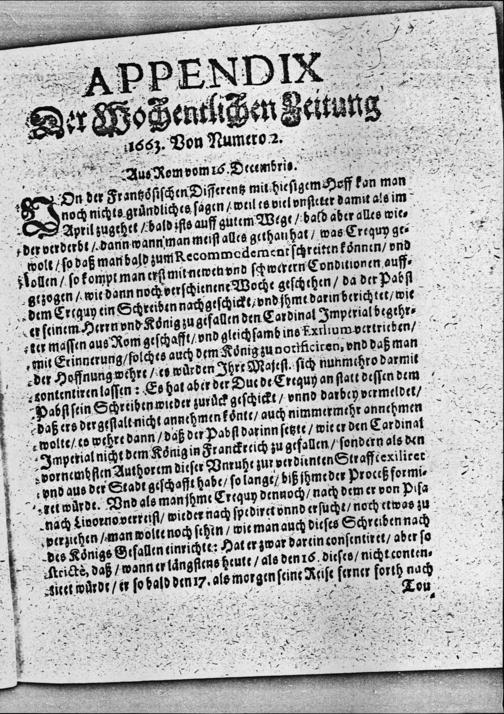 APPENDIX
Der Wochentlichen Zeitung
1663. Von Numero 2.
Aus Rom vom 16. Decembris.
VOn der Frantzösischen Differentz mit hiesigem Hoff kan man
noch nichts gründliches sagen / weil es viel vnsteter damit als im
April zugehet / bald ists auff gutem Wege / bald aber alles wie-
der verderbt / dann wann man meist alles gethan hat / was Crequy ge-
wolt / so daß man bald zum Recommodement schreiten können / vnd
sollen / so kompt man erst mit newen vnd schwerern Conditionen auff-
gezogen / wie dann noch verschienene Woche geschehen / da der Pabst
dem Crequy ein Schreiben nachgeschickt / vnd jhme darin berichtet / wie
er seinem Herrn vnd König zu gefallen den Cardinal Imperial begehr-
ter massen aus Rom geschafft / vnd gleichsamb ins Exilium vertrieben /
mit Erinnerung / solches auch dem König zu notificiren, vnd daß man
der Hoffnung wehre / es würden Jhre Majest. sich nunmehro darmit
contentiren lassen : Es hat aber der Duc de Crequy an statt dessen dem
Pabst sein Schreiben wieder zurück geschickt / vnnd darbey vermeldet /
daß ers der gestalt nicht annehmen könte / auch nimmermehr annehmen
wolte / es wehre dann / daß der Pabst darinn setzte / wie er den Cardinal
Imperial nicht dem König in Franckreich zu gefallen / sondern als den
vornembsten Authorem dieser Vnruhe zur verdienten Straff exiliret
vnd aus der Stadt geschafft habe / so lange / biß jhme der Proceß formi-
ret würde. Vnd als man jhme Crequy dennoch / nach dem er von Pisa
nach Livorno verreist / wieder nach spediret vnnd ersucht / noch etwas zu
verziehen / man wolte noch sehen / wie man auch dieses Schreiben nach
des Königs Gefallen einrichte : Hat er zwar darein consentiret / aber so
stricte, daß / wann er längstens heute / als den 16. dieses / nicht conten-
tiret würde / er so bald den 17. als morgen seine Reise ferner forth nach
Tou